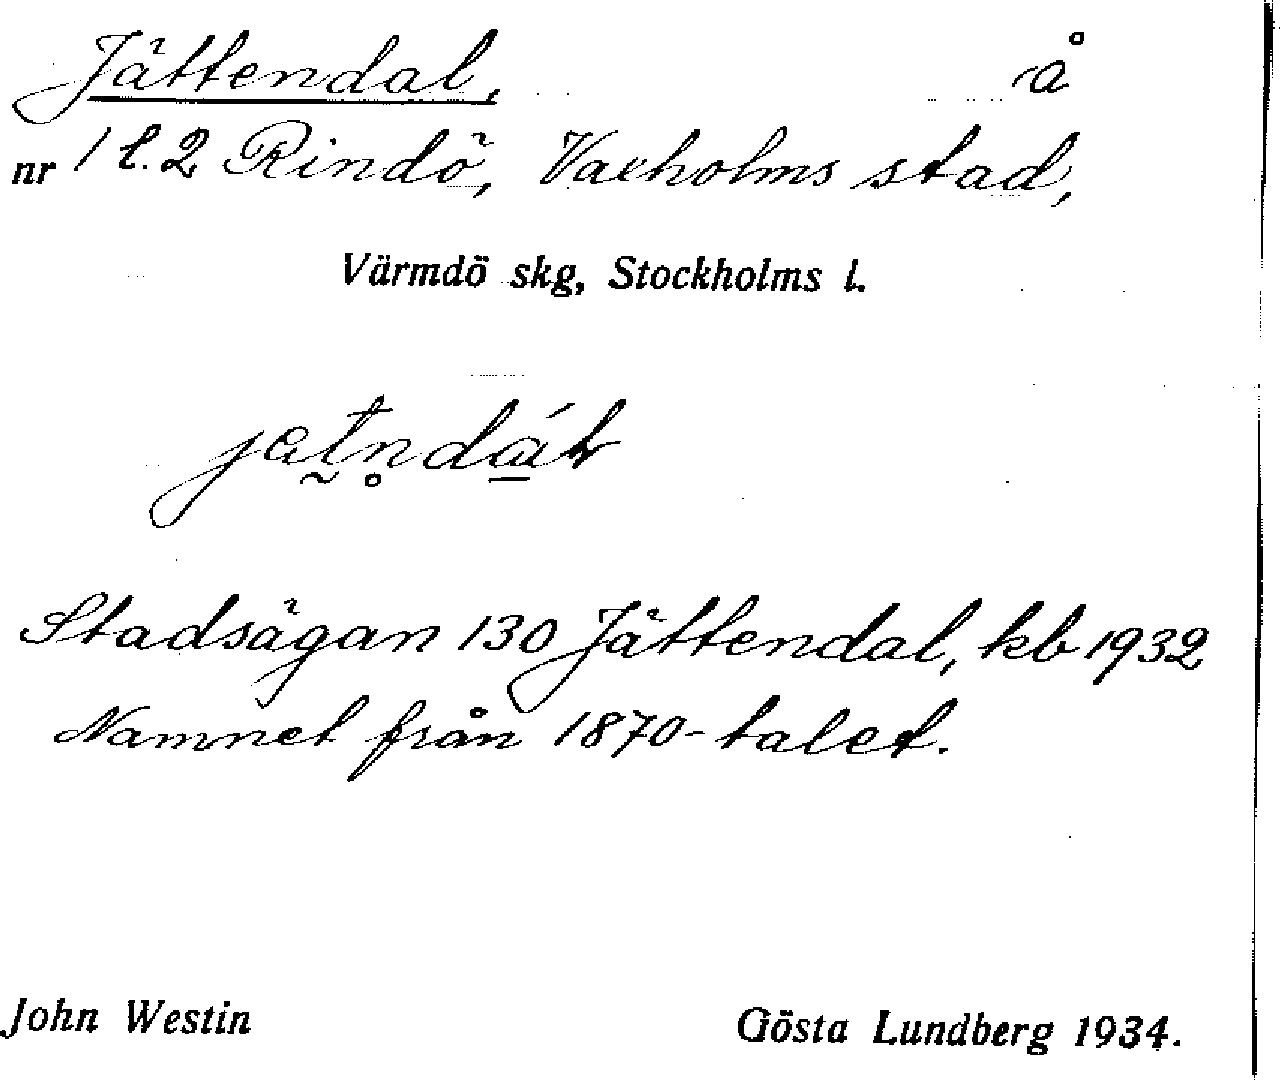 Jättendal, å
nr 1 l. 2 Rindö, Vaxholms stad,
Värmdö skg, Stockholms l.
Stadsägan 130 Jättendal, kb 1932
Namnet från 1870-talet.
John Westin Gösta Lundberg 1934.